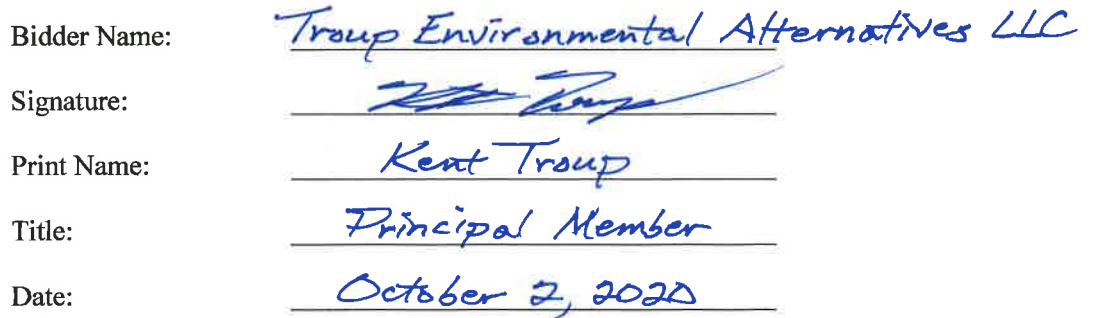 Bidder Name: Troup Environmental Alternatives LLC
Signature: Kent Troup
Print Name: Kent Troup
Title: Principal Member
Date: October 2, 2020